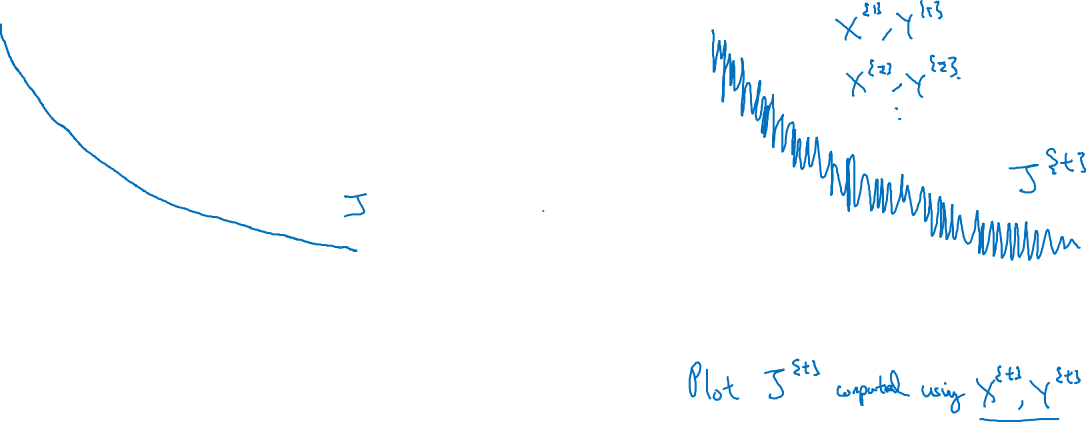 J
X^{1}, Y^{1}
X^{2}, Y^{2}.
⋮
J^{t}
Plot J^{t} computed using X^{t}, Y^{t}